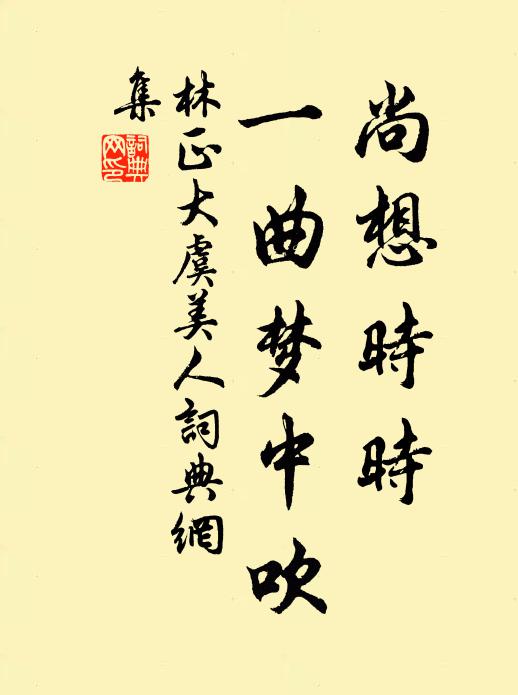 尚想時時
一曲梦中吹
林正大虞美人詞典網
集
詞典
网印